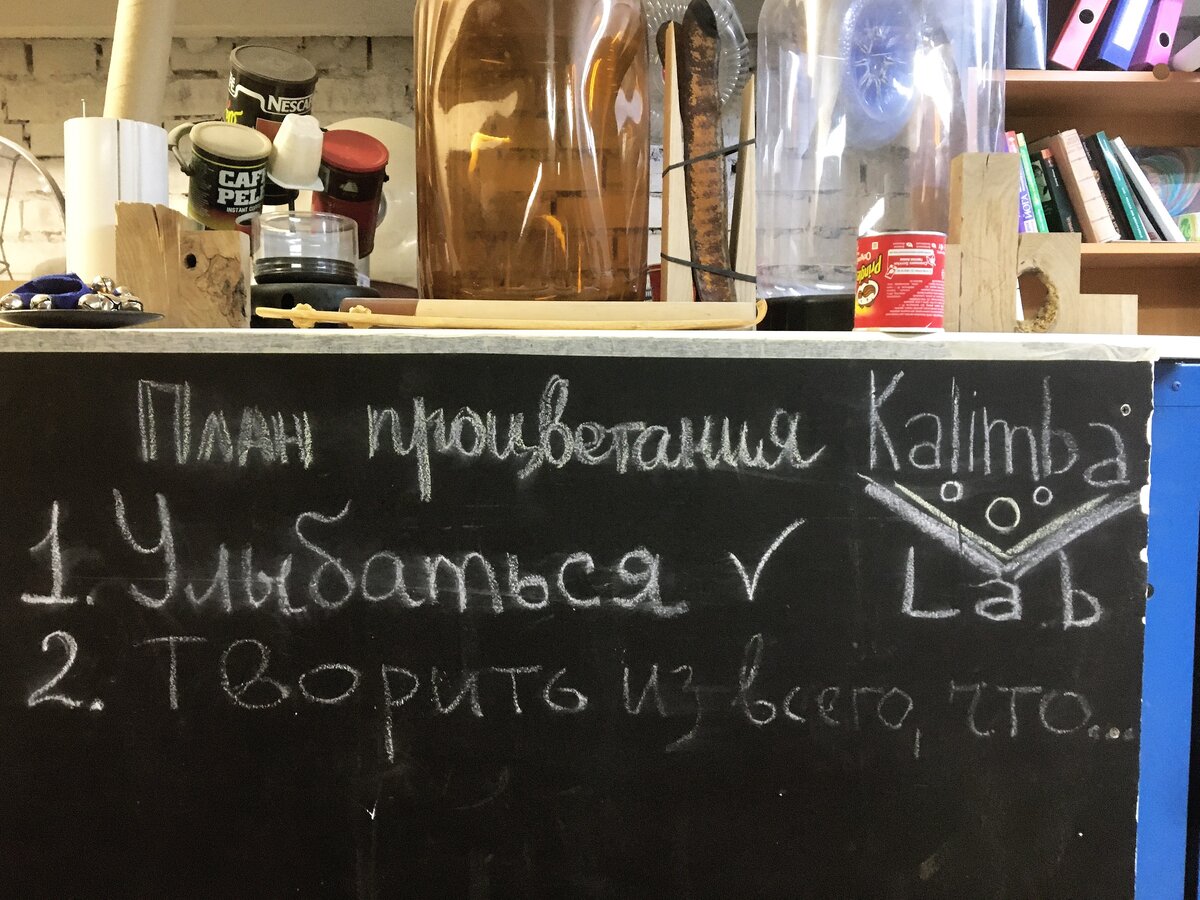 NESCA
CAF
PEL
INSTANT
Pringles
План процветания
Kalimba
Lab
1. Улыбаться ✓
2. Творить из всего, что...